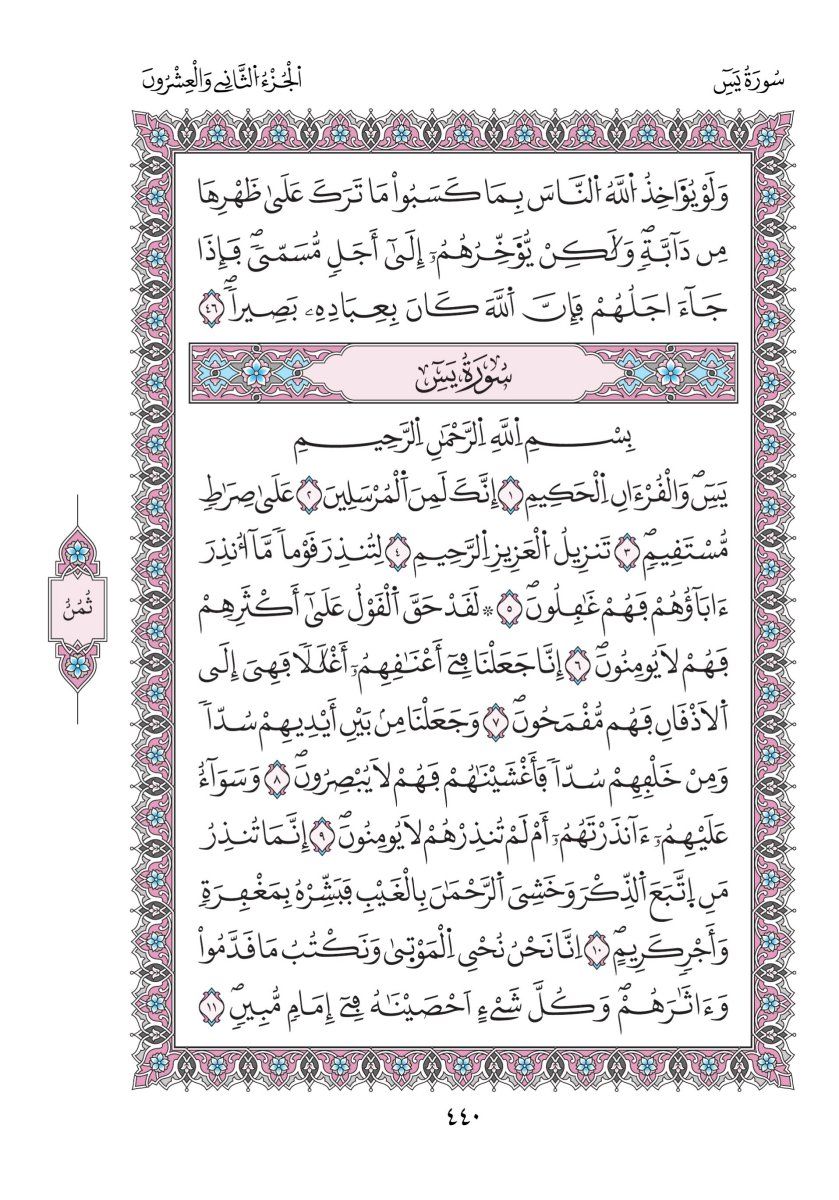 سُورَةُ يَسِٓ
اَ۬لْجُزْءُ اُ۬لثَّانِے وَالْعِشْرُونَ
وَلَوْ يُوَ۬اخِذُ اُ۬للَّهُ اُ۬لنَّاسَ بِمَا كَسَبُواْ مَا تَرَكَ عَلَىٰ ظَهْرِهَا
مِن دَآبَّةٖۖ وَلَٰكِنْ يُّوَ۬خِّرُهُمُۥٓ إِلَىٰٓ أَجَلٖ مُّسَمّيٗۖ فَإِذَا
جَآءَ اجَلُهُمْ فَإِنَّ اَ۬للَّهَ كَانَ بِعِبَادِهِۦ بَصِيراٗۖ ٤٦
سُورَةُ يَسِٓ
بِسْمِ اِ۬للَّهِ اِ۬لرَّحْمَٰنِ اِ۬لرَّحِيمِ
يَسِٓۖ وَالْقُرْءَانِ اِ۬لْحَكِيمِ ١ إِنَّكَ لَمِنَ اَ۬لْمُرْسَلِينَ ٢ عَلَىٰ صِرَٰطٖ
مُّسْتَقِيمٖۖ ٣ تَنزِيلُ اُ۬لْعَزِيزِ اِ۬لرَّحِيمِ ٤ لِتُنذِرَ قَوْماٗ مَّآ أُنذِرَ
ءَابَآؤُهُمْ فَهُمْ غَٰفِلُونَۖ ٥ ۞ لَقَدْ حَقَّ اَ۬لْقَوْلُ عَلَىٰٓ أَكْثَرِهِمْ
فَهُمْ لَا يُومِنُونَۖ ٦ إِنَّا جَعَلْنَا فِےٓ أَعْنَٰقِهِمُۥٓ أَغْلَٰلاٗ فَهِيَ إِلَى
اَ۬لَاذْقَانِ فَهُم مُّقْمَحُونَۖ ٧ وَجَعَلْنَا مِنۢ بَيْنِ أَيْدِيهِمْ سُدّاٗ
وَمِنْ خَلْفِهِمْ سُدّاٗ فَأَغْشَيْنَٰهُمْ فَهُمْ لَا يُبْصِرُونَۖ ٨ وَسَوَآءٌ
عَلَيْهِمُۥٓ ءَآنذَرْتَهُمُۥٓ أَمْ لَمْ تُنذِرْهُمْ لَا يُومِنُونَۖ ٩ إِنَّمَا تُنذِرُ
مَنِ اِ۪تَّبَعَ اَ۬لذِّكْرَ وَخَشِيَ اَ۬لرَّحْمَٰنَ بِالْغَيْبِ فَبَشِّرْهُ بِمَغْفِرَةٖ
وَأَجْرٖ كَرِيمٍۖ ١٠ اِنَّا نَحْنُ نُحْيِ اِ۬لْمَوْتَىٰ وَنَكْتُبُ مَا قَدَّمُواْ
وَءَاثَٰرَهُمْۖ وَكُلَّ شَےْءٍ اَحْصَيْنَٰهُ فِےٓ إِمَامٖ مُّبِينٖۖ ١١
ثُمُنُ
٤٤٠